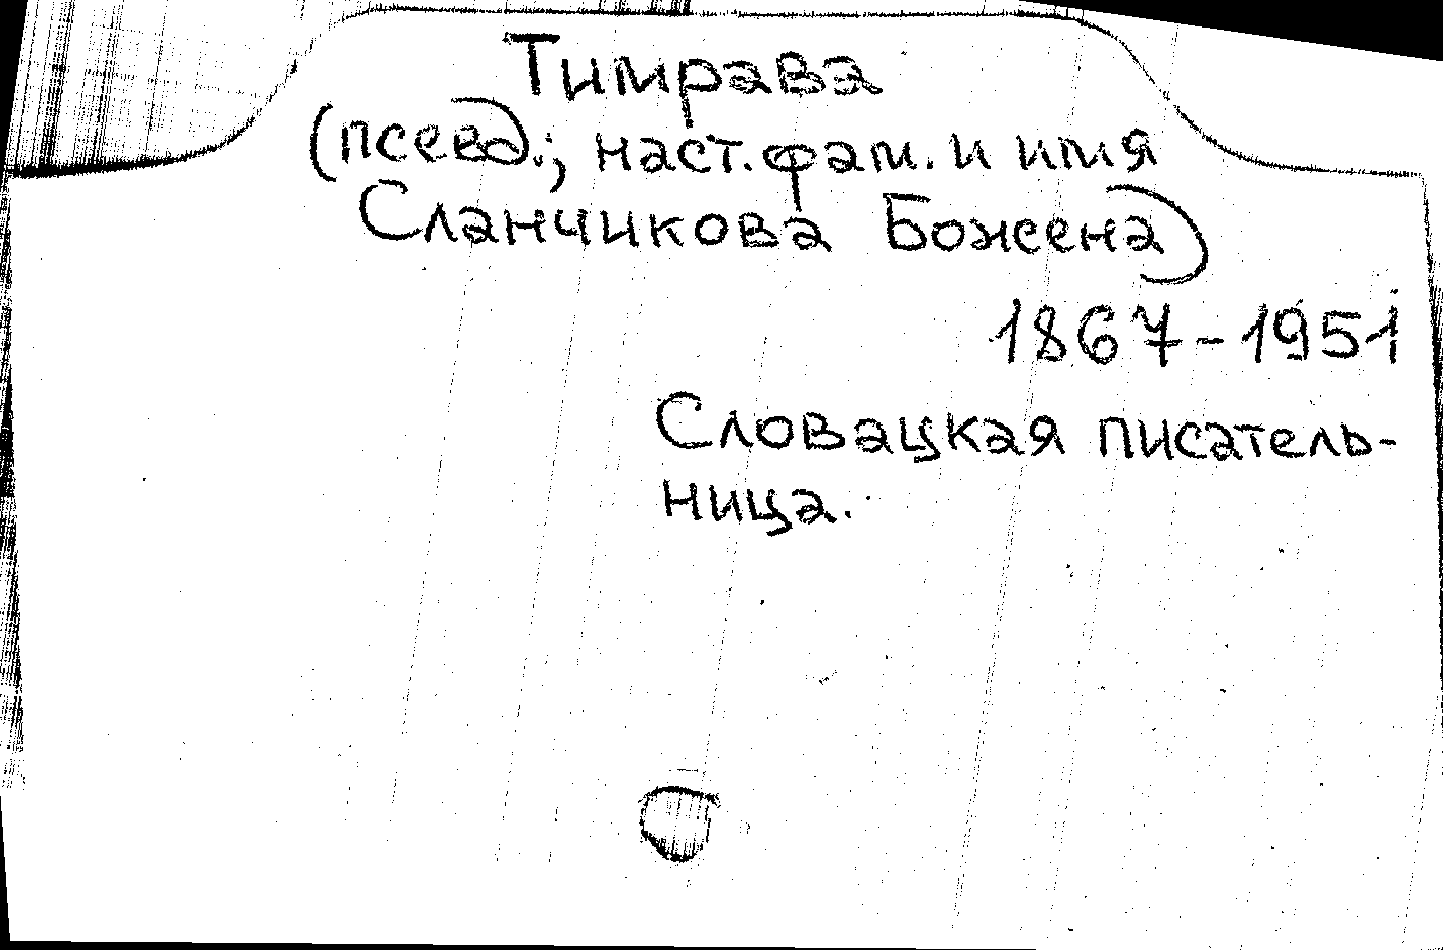 Тимрава
(псевд.; наст. фам. и имя
Сланчикова Божена)
1867-1951
Словацкая писатель-
ница.